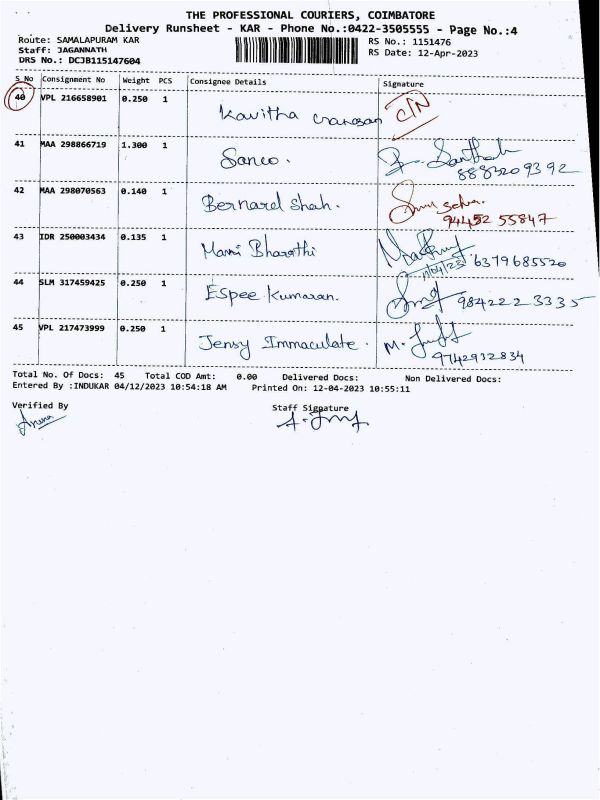 THE PROFESSIONAL COURIERS, COIMBATORE
Delivery Runsheet - KAR - Phone No.:0422-3505555 - Page No.:4
Route: SAMALAPURAM KAR
RS No.: 1151476
Staff: JAGANNATH
RS Date: 12-Apr-2023
DRS No.: DCJB115147604
S No Consignment No Weight PCS Consignee Details Signature
40 VPL 216658901 0.250 1 Kavitha C/N
41 MAA 298866719 1.300 1 Sanco.
42 MAA 298070563 0.140 1 Bernard Shah.
94452 55847
43 IDR 250003434 0.135 1 Mani Bharathi
6379685520
44 SLM 317459425 0.250 1 Espee Kumaran. 984222 3335
45 VPL 217473999 0.250 1 Jensy Immaculate.
9742932834
Total No. Of Docs: 45 Total COD Amt: 0.00 Delivered Docs: Non Delivered Docs:
Entered By :INDUKAR 04/12/2023 10:54:18 AM Printed On: 12-04-2023 10:55:11
Verified By
Staff Signature